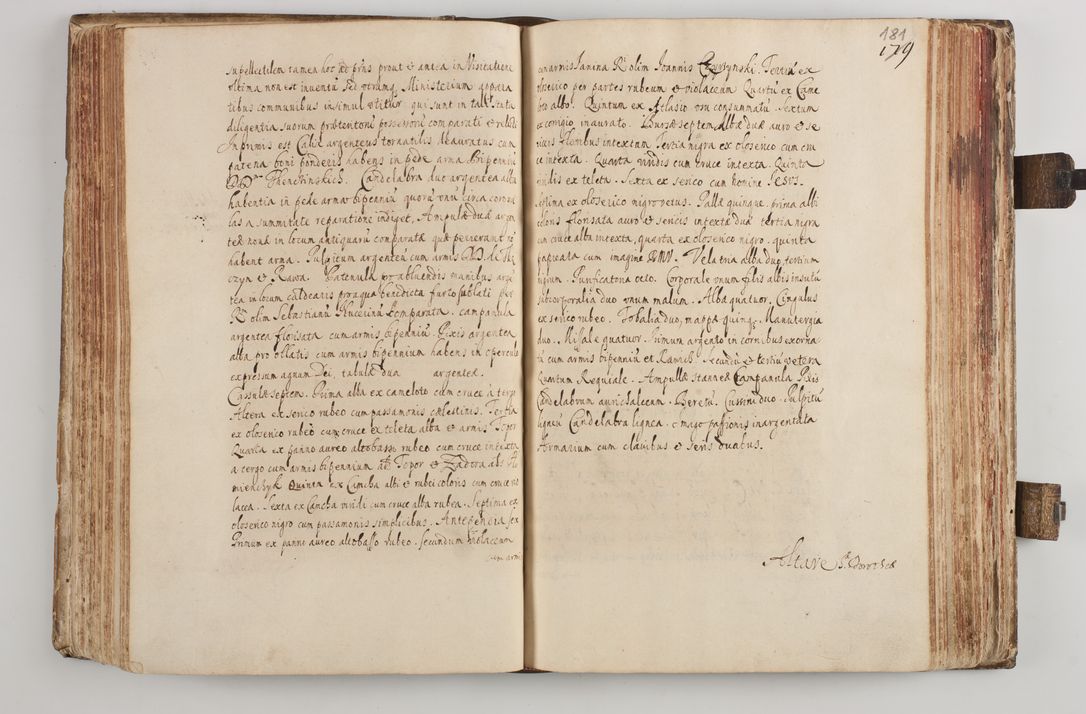 supellectilem tamen hoc ad prns prout et antea in Visitatione
ultima non est inventu sed utrumq Ministerium appara
tibus communibus insimul utitur qui sunt in tali statu
diligentia suorum præteritoru possessoru comparati et
Inprimis est Calix argenteus tornatilis deauratus cum
patena boni ponderis habens in pede arma Bipenniu
Candelabra duo argentea alta
habentia in pede arma bipenniu quoru unu circa coronu
las a summitate reparatione indiget. Ampulæ duæ argen
teæ novæ in locum antiquaru comparatæ quæ perierant
habent arma. Pulpitum argenteu cum armis DD. de
czyn et Rawa. Patenula pro abluendis manibus arge
tea in locum caldearis pro aqua benedicta furto sublati per
R olim Sebastianu comparata. campanula
argentea florisata cum armis bipenniu. Pixis argentea
alba pro oblatis cum armis bipennium habens in operculo
expressum agnum Dei, tabulæ duæ argenteæ.
Casulæ septem. Prima alba ex cameloto cum cruce a tergo
Altera ex serico rubeo cum passamonis cælestinis. Tertia
ex oloserico rubeo cum cruce ex teleta alba et armis Topor
Quarta ex panno aureo altobasso rubeo cum cruce intexta
a tergo cum armis bipennium als Topor et Zadora als
mienczyk Quinta ex Camcha albi et rubei coloris cum cruce vio
lacea. Sexta ex Camcha viridi cum cruce alba rubea. Septima ex
oloserico nigro cum passamonis simplicibus. Antependia sex
Primum ex panno aureo altobasso rubeo. Secundum violaceum
cum armis

181
179
cum armis Janina R olim Joannis Tertiu ex
oloserico per partes rubeum et violaceum Quartu ex Came
loto albo. Quintum ex Atlasio usu consummatu. Sextum
ex corrigio inaurato. Bursæ septem Albæ duæ auro et se
ricis floribus intextæ tertia nigra ex oloserico cum cru
ce intexta. Quarta viridis cum cruce intexta. Quinta
viridis ex teleta. Sexta ex serico cum nomine Jesus.
septima ex oloserico nigro vetus. Pallæ quinque. prima albi
coloris florisata auro et sericis intexta duæ tertia nigra
cum cruce alba intexta, quarta ex oloserico nigro. quinta
cum imagine BMV. Vela tria alba duo, tertium
nigrum. Purificatoria octo. Corporale unum filis albis insutu
subcorporalia duo unum malum. Albæ quatuor. Cingulus
ex serico rubeo. Tobalia duo, mappæ quinq. Manutergia
duo. Missale quatuor. Primum argento in cornibus exorna
tu cum armis bipenniu et Rawicz. Secundu et tertiu vetera
Quartum Requiale. Ampullæ stanneæ Campanula Pixis
Candelabrum aurichalceum. Beretu. Cussini duo. Pulpitu
ligneu Candelabra lignea. imago passionis inargentata
Armarium cum clavibus et seris duabus.

Altare S. Dorotheæ